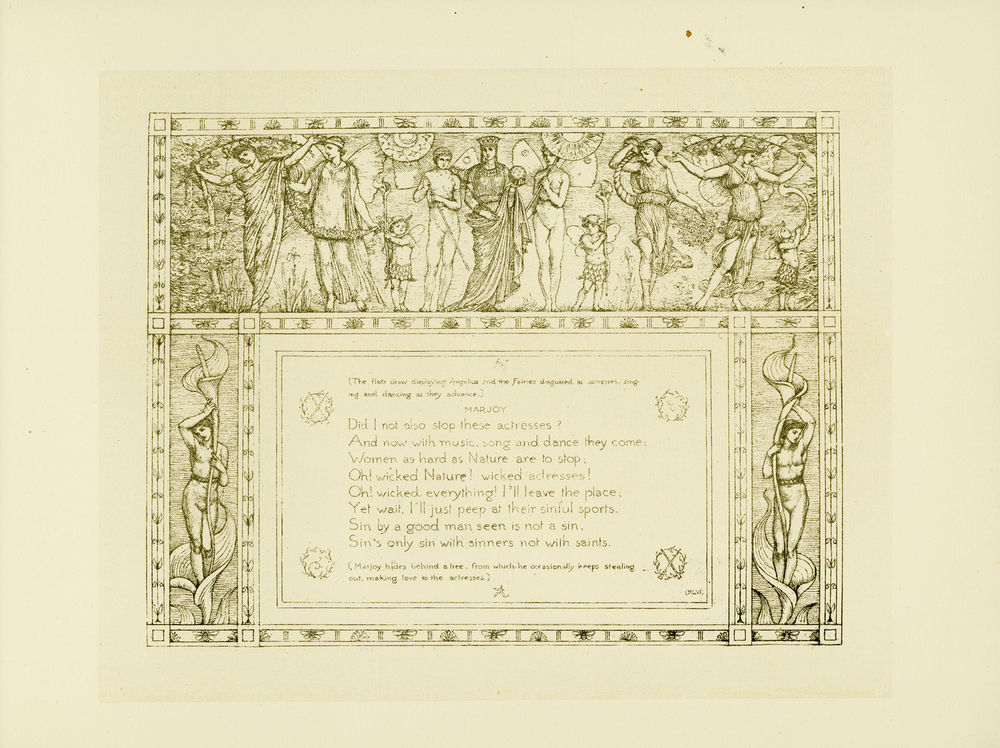 (The flats draw displaying Angelica and the Fairies disguised as actresses, sing-
ing and dancing as they advance.)
MARJOY
Did I not also stop these actresses?
And now with music, song and dance they come;
Women as hard as Nature are to stop;
Oh! wicked Nature! wicked actresses!
Oh! wicked everything! I'll leave the place;
Yet wait, I'll just peep at their sinful sports.
Sin by a good man seen is not a sin,
Sin's only sin with sinners not with saints.
(Marjoy hides behind a tree, from which he occasionally keeps stealing
out, making love to the actresses.)
XLVI.